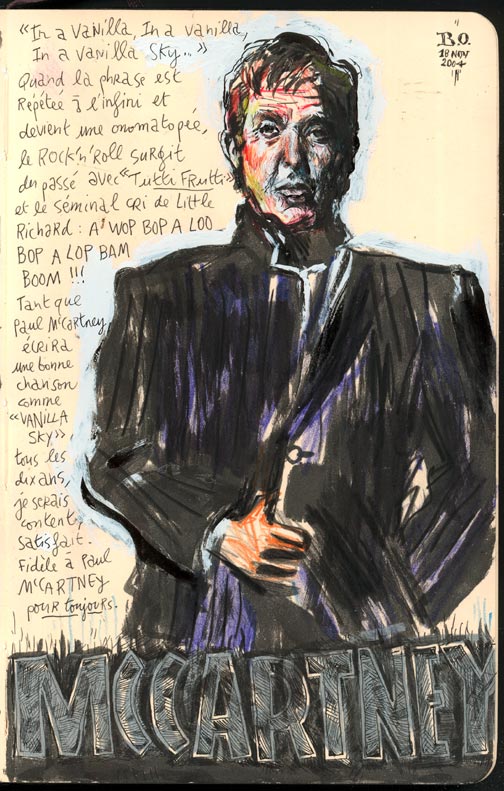 «In a Vanilla, In a vanilla,
In a vanilla Sky...»
Quand la phrase est
Répétée à l'infini et
devient une onomatopee,
le ROCK'n'Roll surgit
du passé avec «Tutti Frutti»
et le séminal cri de Little
Richard : A' WOP BOP A LOO
BOP A LOP BAM
BOOM !!!
Tant que
Paul McCartney,
écrira
une bonne
chanson
comme
«VANILLA
SKY»,
tous les
dix ans,
je serais
content,
satisfait.
Fidèle à Paul
McCARTNEY
pour toujours.
B.O.
18 NOV
2004
MCCARTNEY